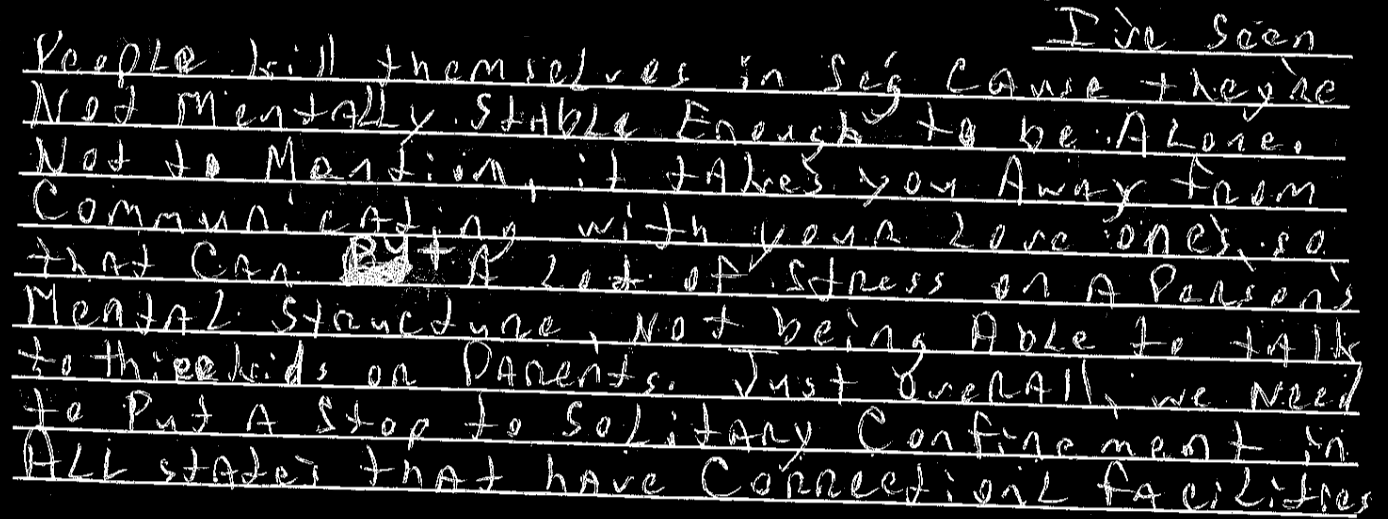 I've Seen
People kill themselves in Seg Cause they're
Not Mentally Stable Enough to be Alone.
Not to Mention, it takes you Away from
Communicating with your Love one's, so
that Can Put A Lot of Stress on A Person's
Mental Structure, Not being Able to talk
to thier kids or Parents. Just OverAll, we Need
to Put A Stop to Solitary Confinement in
ALL states that have Correctional facilities